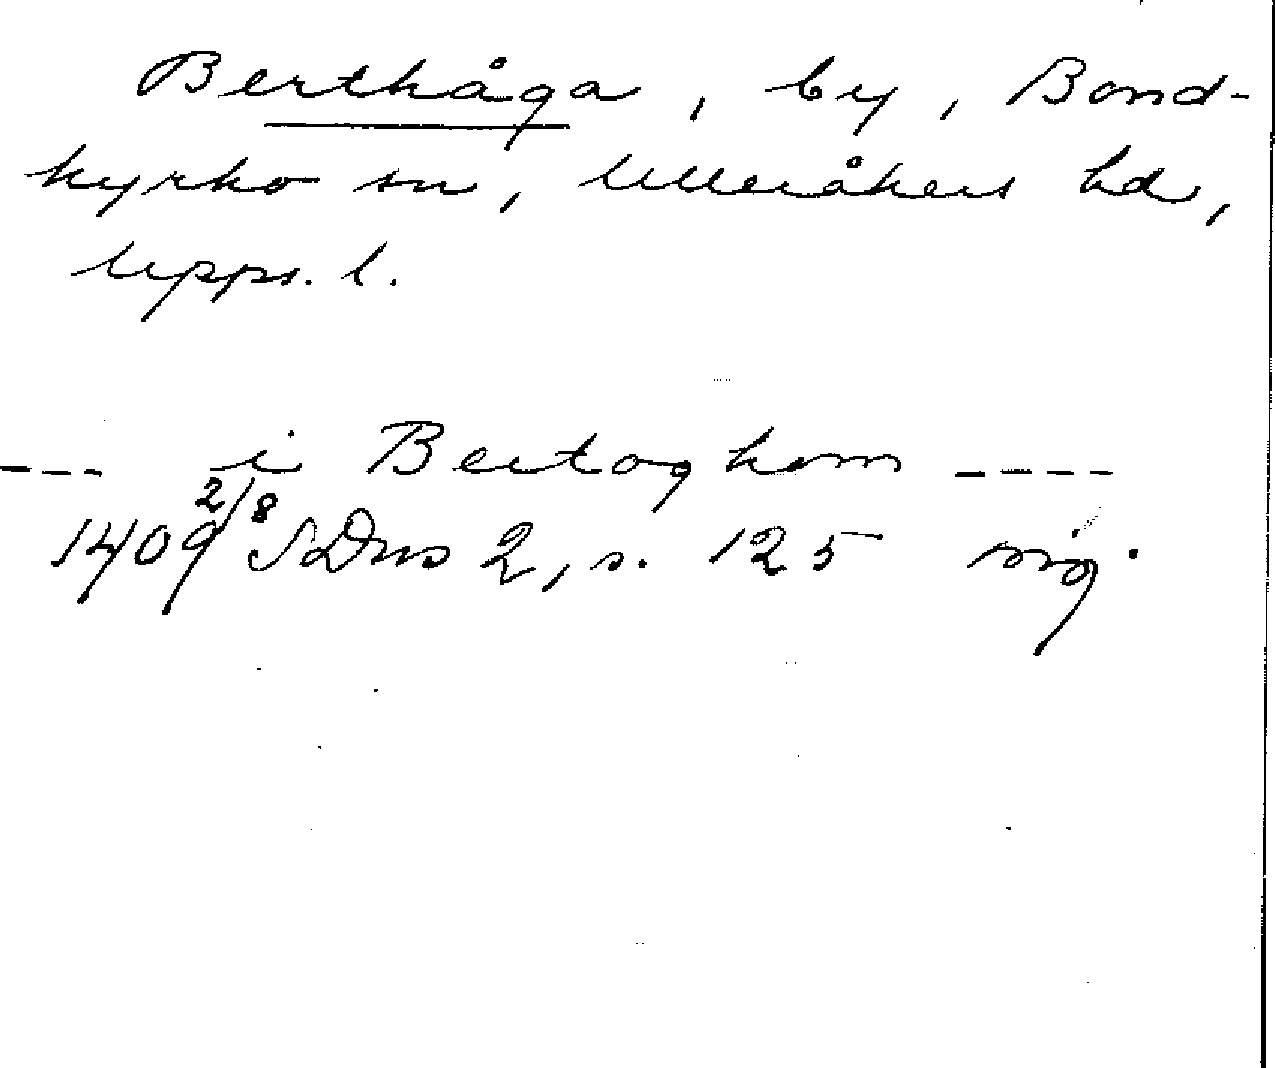 Berthåga, by, Bond-
kyrko sn, Ulleråkers hd,
Upps. l.
--- i Bertoghom ----
1409 2/8 SDns 2, s. 125 sig.